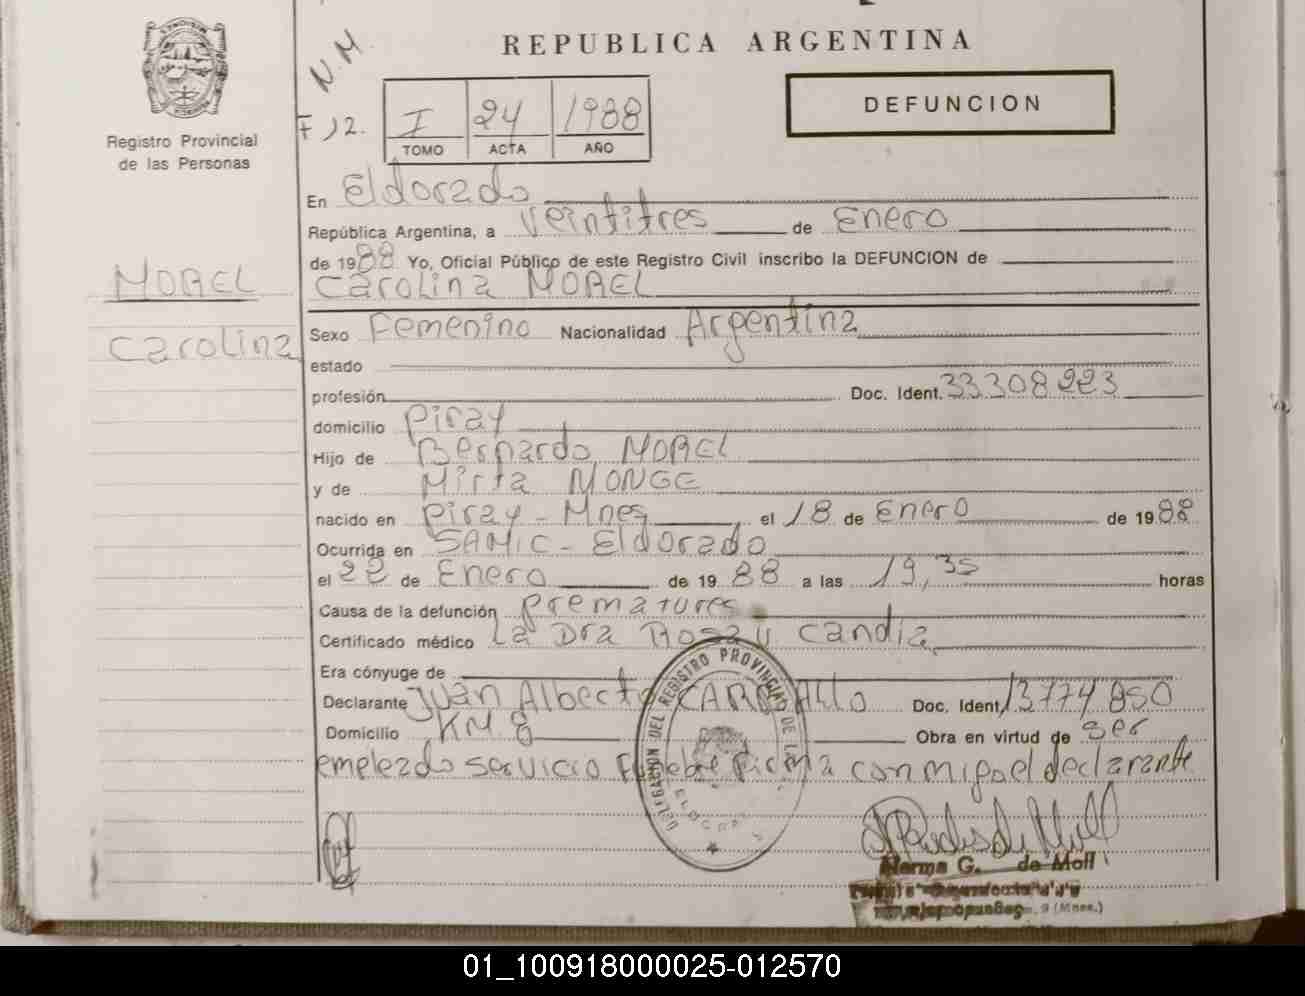 REPUBLICA ARGENTINA
N.M
F 12.
I 24 1988
TOMO ACTA AÑO
DEFUNCION
Registro Provincial
de las Personas
En Eldorado
República Argentina, a Veintitres de Enero
de 1988 Yo, Oficial Público de este Registro Civil inscribo la DEFUNCION de
Carolina MOREL
MOREL
Carolina
Sexo Femenino Nacionalidad Argentina
estado
profesión Doc. Ident. 33308223
domicilio Piray
Hijo de Bernardo MOREL
y de Mirta MONGE
nacido en Piray - Mnes el 18 de Enero de 1988
Ocurrida en SAMIC - Eldorado
el 22 de Enero de 1988 a las 19,35 horas
Causa de la defunción Prematures
Certificado médico La Dra Rosa Candia
Era cónyuge de
Declarante Juan Alberto Doc. Ident. 13774850
Domicilio KM 8 Obra en virtud de ser
empleado servicio Funebre Firma conmigo el declarante
DELEGACION DEL REGISTRO PROVINCIAL DE LA
Norma G. de Moll
(Mnes.)
01_100918000025-012570